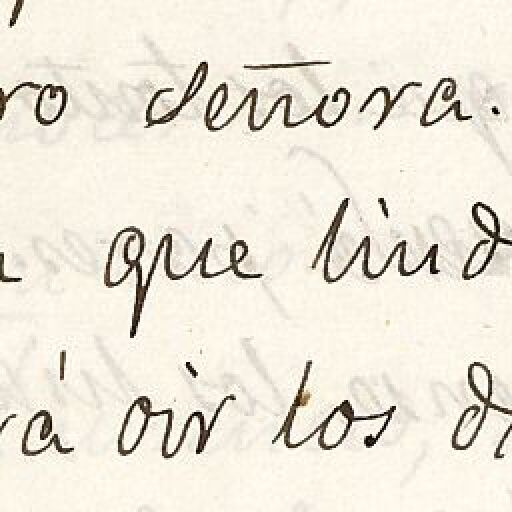 ro señora.
que lind
rá oir los d